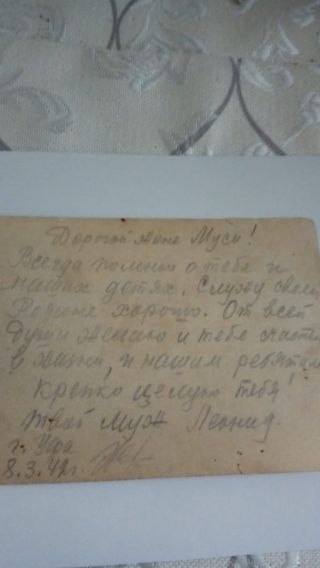 Дорогой жене Мусе!
Всегда помню о тебе и
наших детях. Служу своей
Родине хорошо. От всей
души желаю и тебе счастья
в жизни, и нашим ребятам
Крепко целую тебя!
твой муж Леонид.
г. Уфа
8.3.42г.